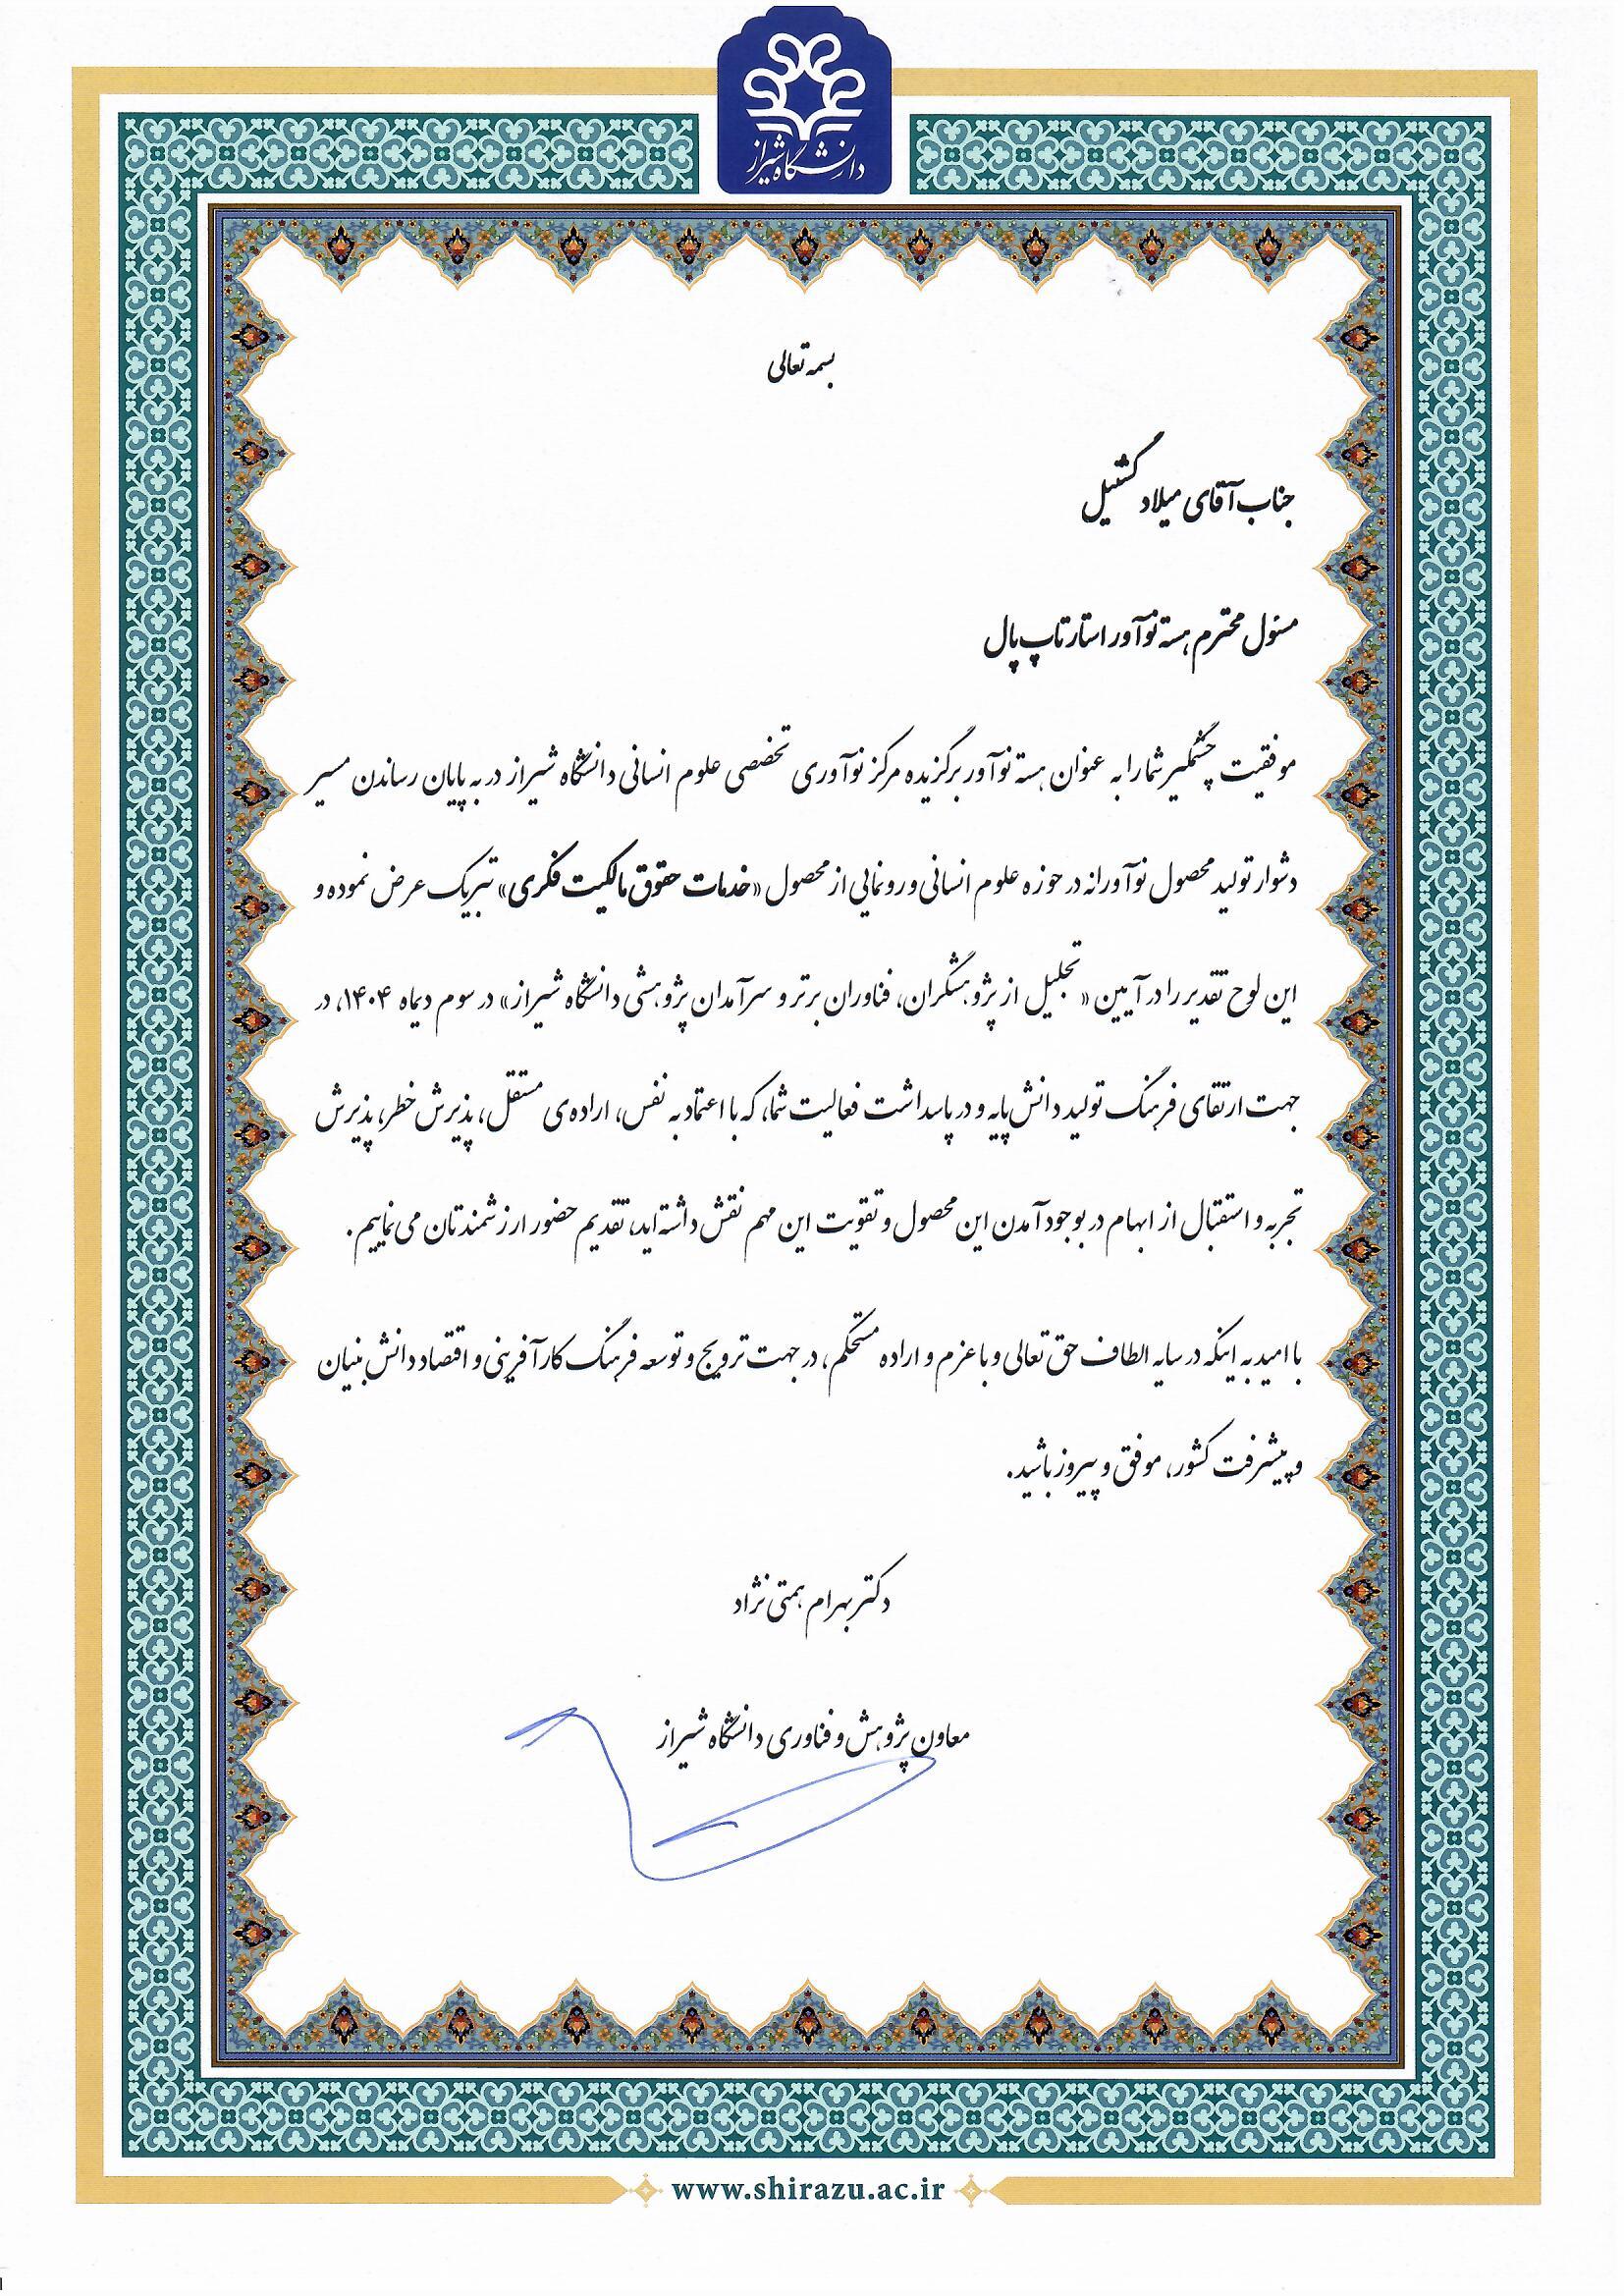 دانشگاه شیراز
بسمه تعالی
جناب آقای میلاد گشتیل
مسئول محترم هسته نوآور استارتاپ پال
موفقیت چشمگیر شما را به عنوان هسته نوآور برگزیده مرکز نوآوری تخصصی علوم انسانی دانشگاه شیراز در به پایان رساندن مسیر
دشوار تولید محصول نوآورانه در حوزه علوم انسانی و رونمایی از محصول «خدمات حقوق مالکیت فکری» تبریک عرض نموده و
این لوح تقدیر را در آیین « تجلیل از پژوهشگران، فناوران برتر و سرآمدان پژوهشی دانشگاه شیراز» در سوم دیماه ۱۴۰۴، در
جهت ارتقای فرهنگ تولید دانش پایه و در پاسداشت فعالیت شما، که با اعتماد به نفس، اراده‌ی مستقل، پذیرش خطر، پذیرش
تجربه و استقبال از ابهام در بوجود آمدن این محصول و تقویت این مهم نقش داشته‌اید، تقدیم حضور ارزشمندتان می‌نماییم.
با امید به اینکه در سایه الطاف حق تعالی و با عزم و اراده مستحکم، در جهت ترویج و توسعه فرهنگ کارآفرینی و اقتصاد دانش بنیان
و پیشرفت کشور، موفق و پیروز باشید.
دکتر بهرام همتی نژاد
معاون پژوهش و فناوری دانشگاه شیراز
www.shirazu.ac.ir